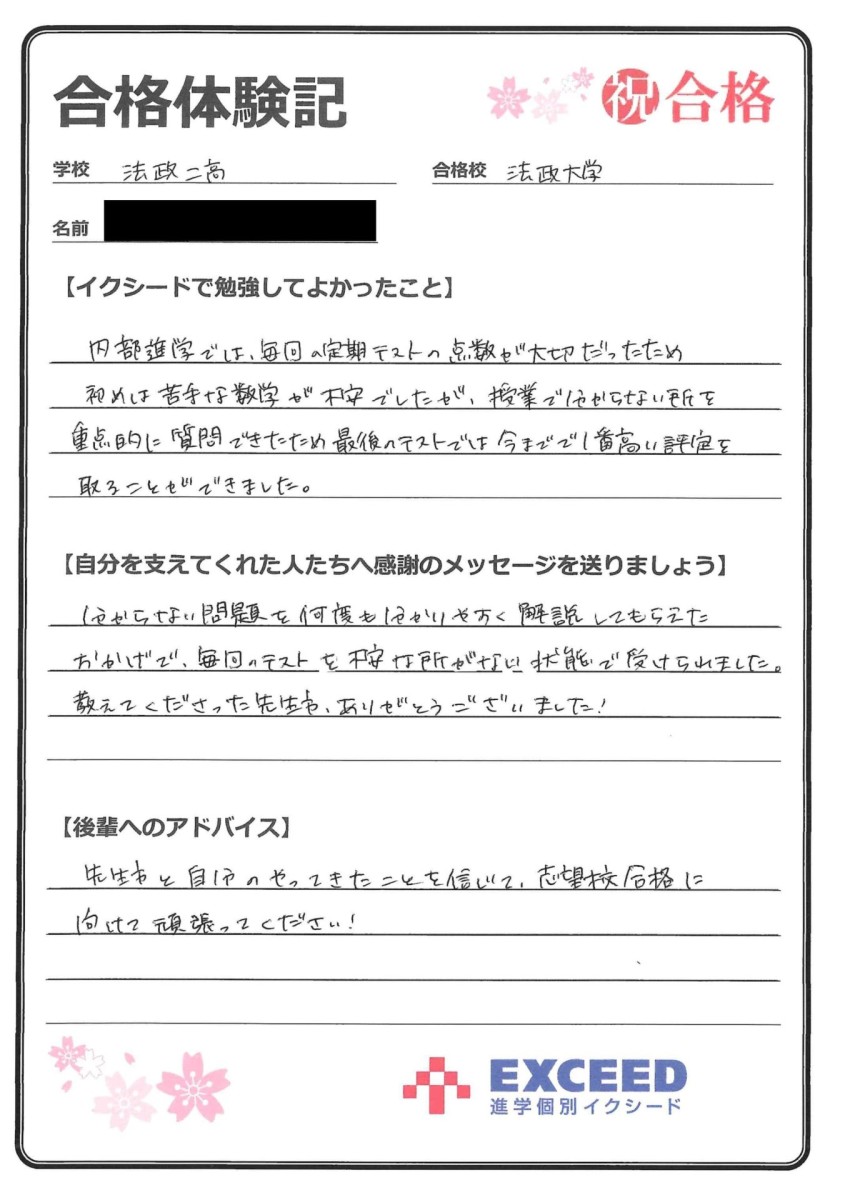 合格体験記
祝合格
学校 法政二高
合格校 法政大学
名前
【イクシードで勉強してよかったこと】
内部進学では、毎回の定期テストの点数が大切だったため
初めは苦手な数学が不安でしたが、授業で分からない所を
重点的に質問できたため最後のテストでは今までで1番高い評定を
取ることができました。
【自分を支えてくれた人たちへ感謝のメッセージを送りましょう】
分からない問題を何度も分かりやすく解説してもらえた
おかげで、毎回のテストを不安な所がない状態で受けられました。
教えてくださった先生方、ありがとうございました!
【後輩へのアドバイス】
先生方と自分のやってきたことを信じて、志望校合格に
向けて頑張ってください!
EXCEED
進学個別イクシード